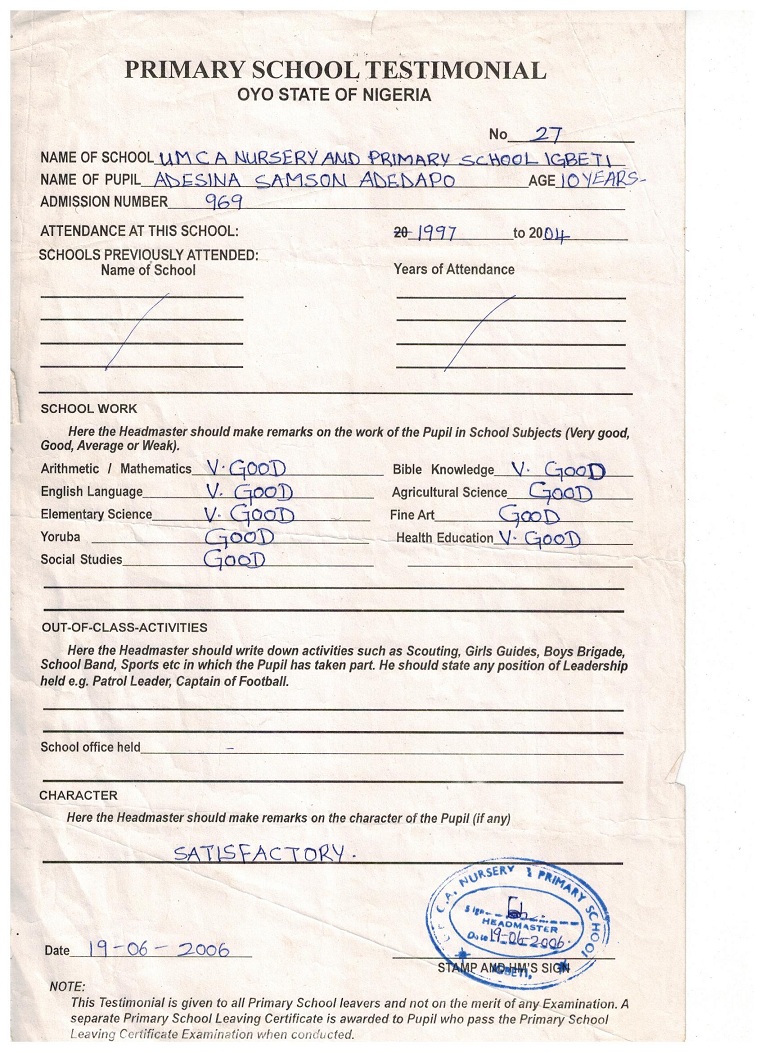 PRIMARY SCHOOL TESTIMONIAL
OYO STATE OF NIGERIA
No 27
NAME OF SCHOOL UMCA NURSERY AND PRIMARY SCHOOL IGBETI
NAME OF PUPIL ADESINA SAMSON ADEDAPO AGE 10 YEARS-
ADMISSION NUMBER 969
ATTENDANCE AT THIS SCHOOL: 20 1997 to 2004
SCHOOLS PREVIOUSLY ATTENDED:
Name of School Years of Attendance
SCHOOL WORK
Here the Headmaster should make remarks on the work of the Pupil in School Subjects (Very good,
Good, Average or Weak).
Arithmetic / Mathematics V. GOOD Bible Knowledge V. GOOD
English Language V. GOOD Agricultural Science GOOD
Elementary Science V. GOOD Fine Art GOOD
Yoruba GOOD Health Education V. GOOD
Social Studies GOOD
OUT-OF-CLASS-ACTIVITIES
Here the Headmaster should write down activities such as Scouting, Girls Guides, Boys Brigade,
School Band, Sports etc in which the Pupil has taken part. He should state any position of Leadership
held e.g. Patrol Leader, Captain of Football.
School office held -
CHARACTER
Here the Headmaster should make remarks on the character of the Pupil (if any)
SATISFACTORY.
C.A. NURSERY & PRIMARY SCHOOL
Sign
HEADMASTER
Date 19-06-2006.
IGBETI.
Date 19-06-2006
STAMP AND HM'S SIGN
NOTE:
This Testimonial is given to all Primary School leavers and not on the merit of any Examination. A
separate Primary School Leaving Certificate is awarded to Pupil who pass the Primary School
Leaving Certificate Examination when conducted.